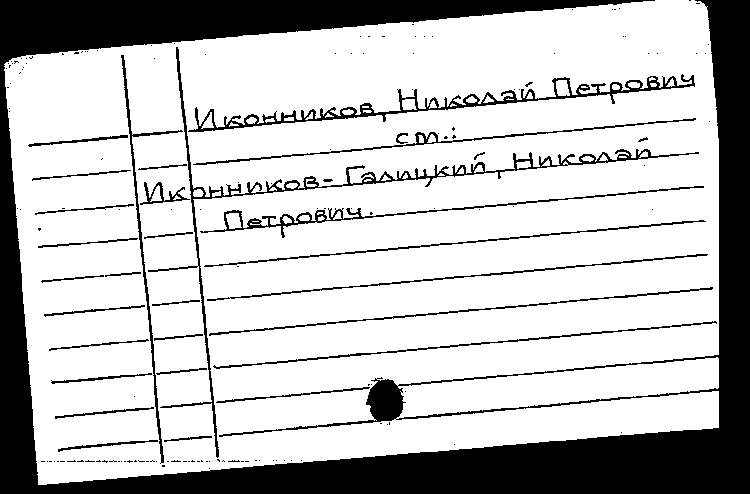 Иконников, Николай Петрович
см.:
Иконников-Галицкий, Николай
Петрович.